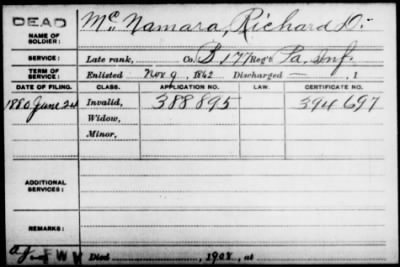 DEAD
NAME OF SOLDIER: McNamara, Richard D.
SERVICE: Late rank, Co. B 177 Reg't Pa. Inf.
TERM OF SERVICE: Enlisted Nov 9, 1862 Discharged — , 1
DATE OF FILING. CLASS. APPLICATION NO. LAW. CERTIFICATE NO.
1880 June 24 Invalid, 388895 394697
Widow,
Minor,
ADDITIONAL SERVICES:
REMARKS:
Died , 1908, at